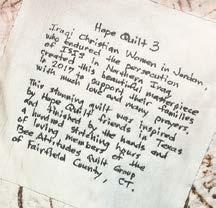 Hope Quilt 3
Iraqi Christian Women in Jordan,
who endured the persecution
of ISIS in Northern Iraq,
created this beautiful masterpiece
in 2017 to support their families
with much love and many prayers.
This stunning quilt was inspired
by Hope Quilt friends in Texas
and finished by the hands and
of hundred stitching hours
of loving members of the
Bee Attitudes Quilt Group
of Fairfield County, CT.